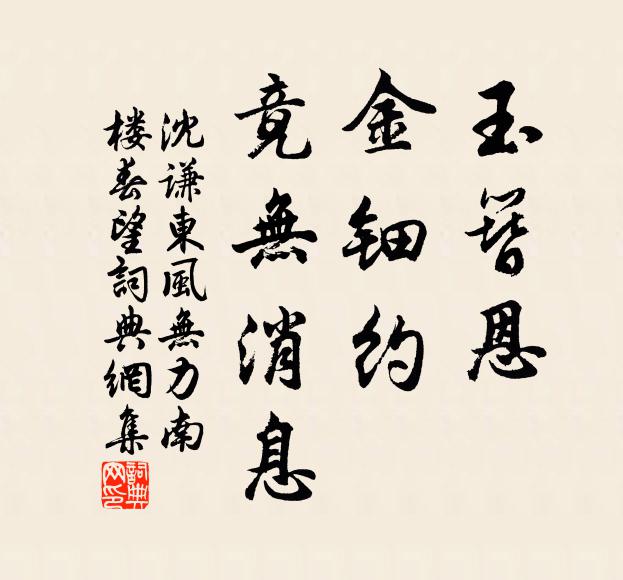 玉簪恩
金钿约
竟無消息
沈謙東風無力南
楼春望詞典網集
詞典
网印